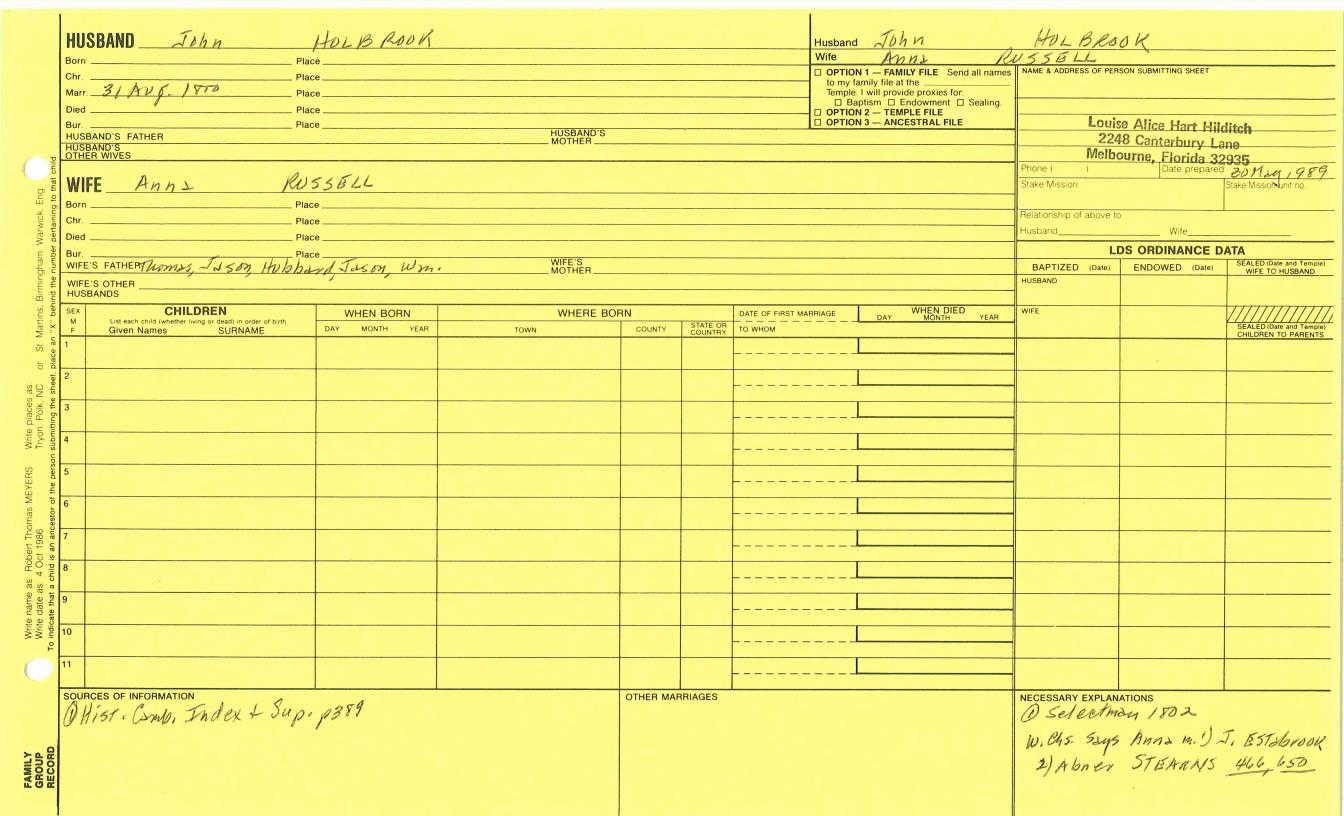 HUSBAND John HOLBROOK
Born Place
Chr. Place
Marr. 31 Aug. 1800 Place
Died Place
Bur. Place
HUSBAND'S FATHER HUSBAND'S MOTHER
HUSBAND'S OTHER WIVES
Husband John HOLBROOK
Wife Anna RUSSELL
☐ OPTION 1 — FAMILY FILE Send all names
to my family file at the
Temple. I will provide proxies for:
☐ Baptism ☐ Endowment ☐ Sealing.
☐ OPTION 2 — TEMPLE FILE
☐ OPTION 3 — ANCESTRAL FILE
NAME & ADDRESS OF PERSON SUBMITTING SHEET
Louise Alice Hart Hilditch
2248 Canterbury Lane
Melbourne, Florida 32935
Phone ( ) Date prepared 20 May 1989
Stake Mission: Stake Mission unit no.
Relationship of above to
Husband Wife
WIFE Anna RUSSELL
Born Place
Chr. Place
Died Place
Bur. Place
WIFE'S FATHER Thomas, Jason, Hubbard, Jason, Wm. WIFE'S MOTHER
WIFE'S OTHER HUSBANDS
LDS ORDINANCE DATA
BAPTIZED (Date) ENDOWED (Date) SEALED (Date and Temple) WIFE TO HUSBAND
HUSBAND
WIFE
SEALED (Date and Temple) CHILDREN TO PARENTS
SEX M F
CHILDREN
List each child (whether living or dead) in order of birth
Given Names SURNAME
WHEN BORN
DAY MONTH YEAR
WHERE BORN
TOWN COUNTY STATE OR COUNTRY
DATE OF FIRST MARRIAGE
TO WHOM
WHEN DIED
DAY MONTH YEAR
1
2
3
4
5
6
7
8
9
10
11
SOURCES OF INFORMATION
① Hist. Camb. Index & Sup. p389
OTHER MARRIAGES
NECESSARY EXPLANATIONS
① Selectman 1802
W. Chs. says Anna m. 1) J. ESTabrook
2) Abner STEARNS 466, 650
Write name as: Robert Thomas MEYERS Write places as: Tryon, Polk, NC or St. Martins, Birmingham, Warwick, Eng
Write date as: 4 Oct 1986
To indicate that a child is an ancestor of the person submitting the sheet, place an "X" behind the number pertaining to that child
FAMILY
GROUP
RECORD